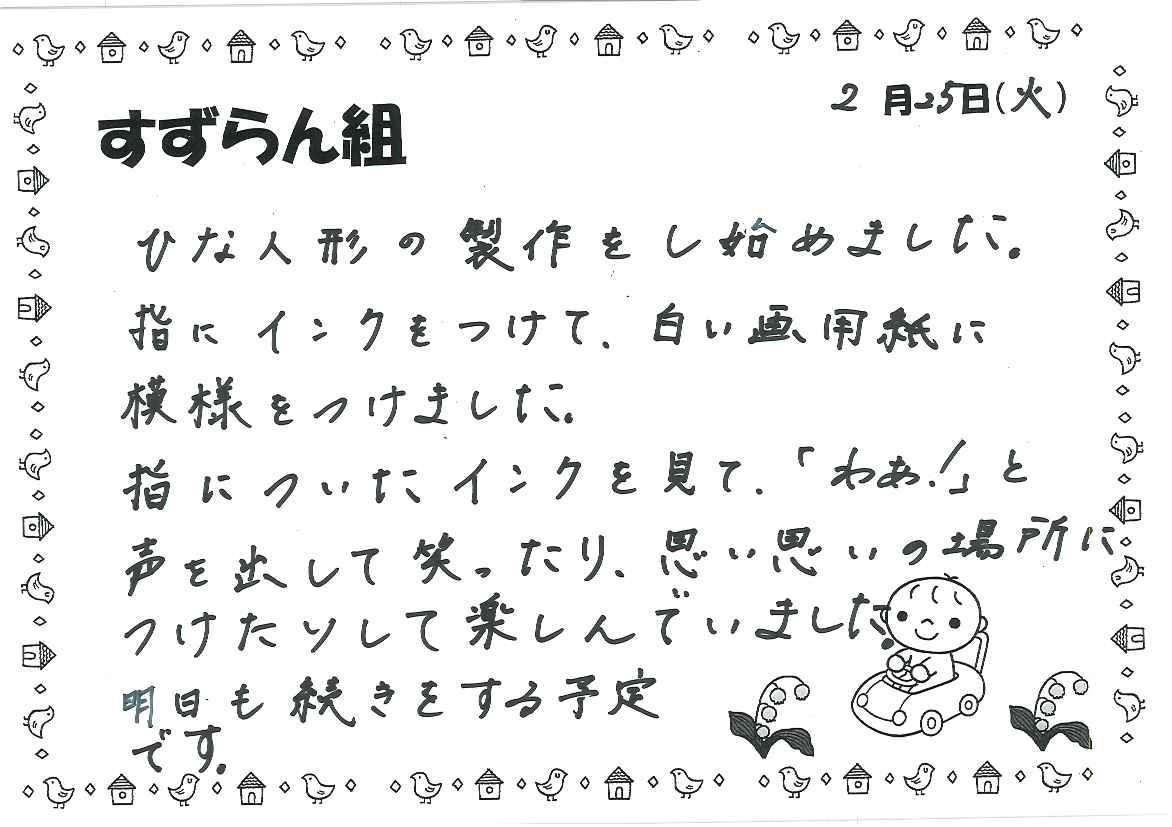 2月25日(火)
すずらん組
ひな人形の製作をし始めました。
指にインクをつけて、白い画用紙に
模様をつけました。
指についたインクを見て、「わあ!」と
声を出して笑ったり、思い思いの場所に
つけたりして楽しんでいました。
明日も続きをする予定
です。